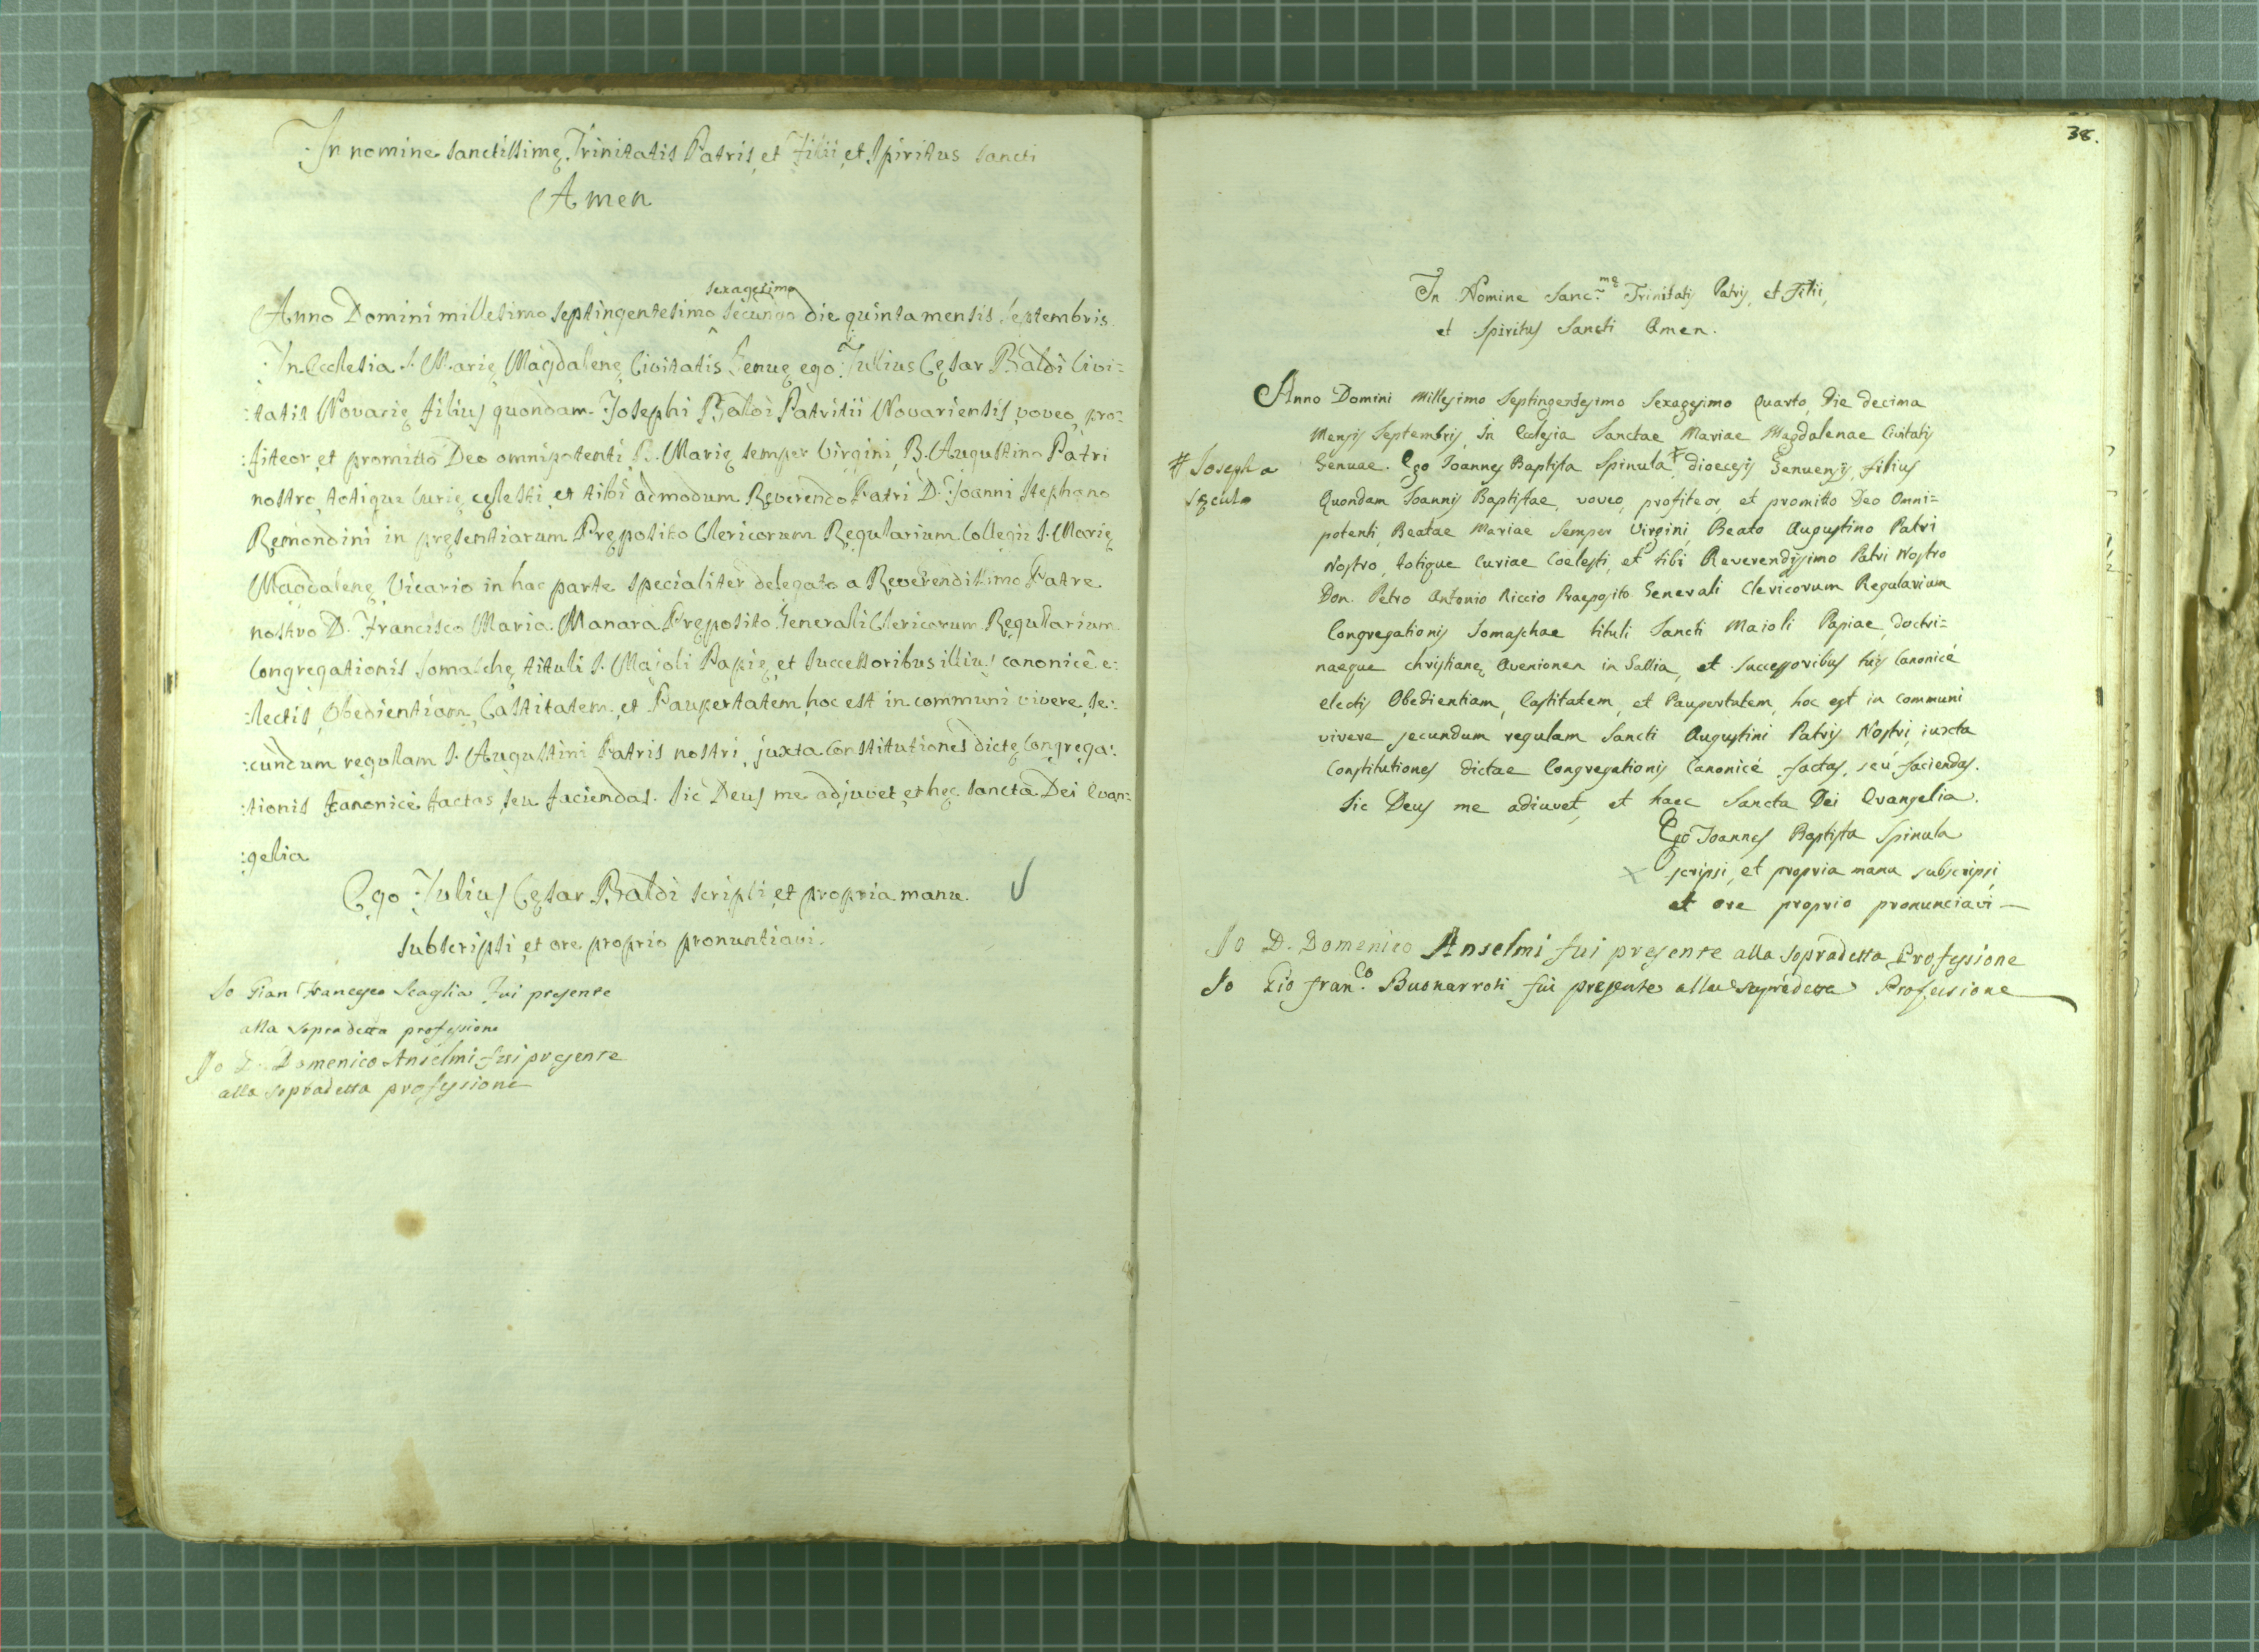 In nomine sanctissimę Trinitatis Patris, et Filii, et Spiritus Sancti
Amen
sexagesimo
Anno Domini millesimo septingentesimo ^ secundo die quinta mensis Septembris.
In Ecclesia S. Marię Magdalenę Civitatis Genuę ego Julius Cęsar Baldi Civi=
:tatis Novarię filius quondam Josephi Baldi Patritii Novariensis, voveo, pro:
:fiteor, et promitto Deo omnipotenti, B. Marię semper Virgini, B. Augustino Patri
nostro, totique Curię cęlesti, et tibi admodum Reverendo Patri D. Joanni Stephano
Remondini in pręsentiarum Pręposito Clericorum Regularium Collegii S. Marię
Magdalenę Vicario in hac parte specialiter delegato a Reverendissimo Patre
nostro D. Francisco Maria Manara Pręposito Generali Clericorum Regularium
Congregationis Somaschę tituli S. Majoli Papię, et Successoribus illius canonicè e:
:lectis, Obedientiam, Castitatem, et Paupertatem, hoc est in communi vivere, se:
:cundum regulam S. Augustini Patris nostri, juxta Constitutiones dictę Congrega:
:tionis canonicè factas, seu faciendas. Sic Deus me adjuvet, et hęc sancta Dei Evan:
:gelia
Ego Julius Cęsar Baldi scripsi, et propria manu
subscripsi, et ore proprio pronuntiavi.
Io Gian Francesco Scaglia fui presente
alla sopradetta professione
Io D. Domenico Anselmi fui presente
alla sopradetta professione
38.
In Nomine Sanc.mę Trinitatis Patris, et Filii,
et Spiritus Sancti Amen.
Anno Domini Millesimo Septingentesimo Sexagesimo Quarto, Die decima
Mensis Septembris, In Ecclesia Sanctae Mariae Magdalenae Civitatis
# Joseph a
sęculo
Genuae. Ego Joannes Baptista Spinula # dioecesis Genuensis, filius
Quondam Joannis Baptistae, voveo, profiteor, et promitto Deo Omni=
potenti, Beatae Mariae Semper Virgini, Beato Augustino Patri
Nostro, totique Curiae Coelesti, et tibi Reverendissimo Patri Nostro
Don. Petro Antonio Riccio Praeposito Generali Clericorum Regularium
Congregationis Somaschae tituli Sancti Maioli Papiae, doctri=
naeque christianę Avenionen in Gallia, et Successoribus tuis Canonicé
electis Obedientiam, Castitatem, et Paupertatem, hoc est in communi
vivere secundum regulam Sancti Augustini Patris Nostri, iuxta
Constitutiones dictae Congregationis Canonicé factas, seú faciendas.
Sic Deus me adiuvet, et haec Sancta Dei Evangelia.
Ego Joannes Baptista Spinula
scripsi, et propria manu subscripsi,
et ore proprio pronunciavi
Io D. Domenico Anselmi fui presente alla sopradetta Professione
Io Gio Fran.co Buonarroti fui presente alla sopradetta Professione